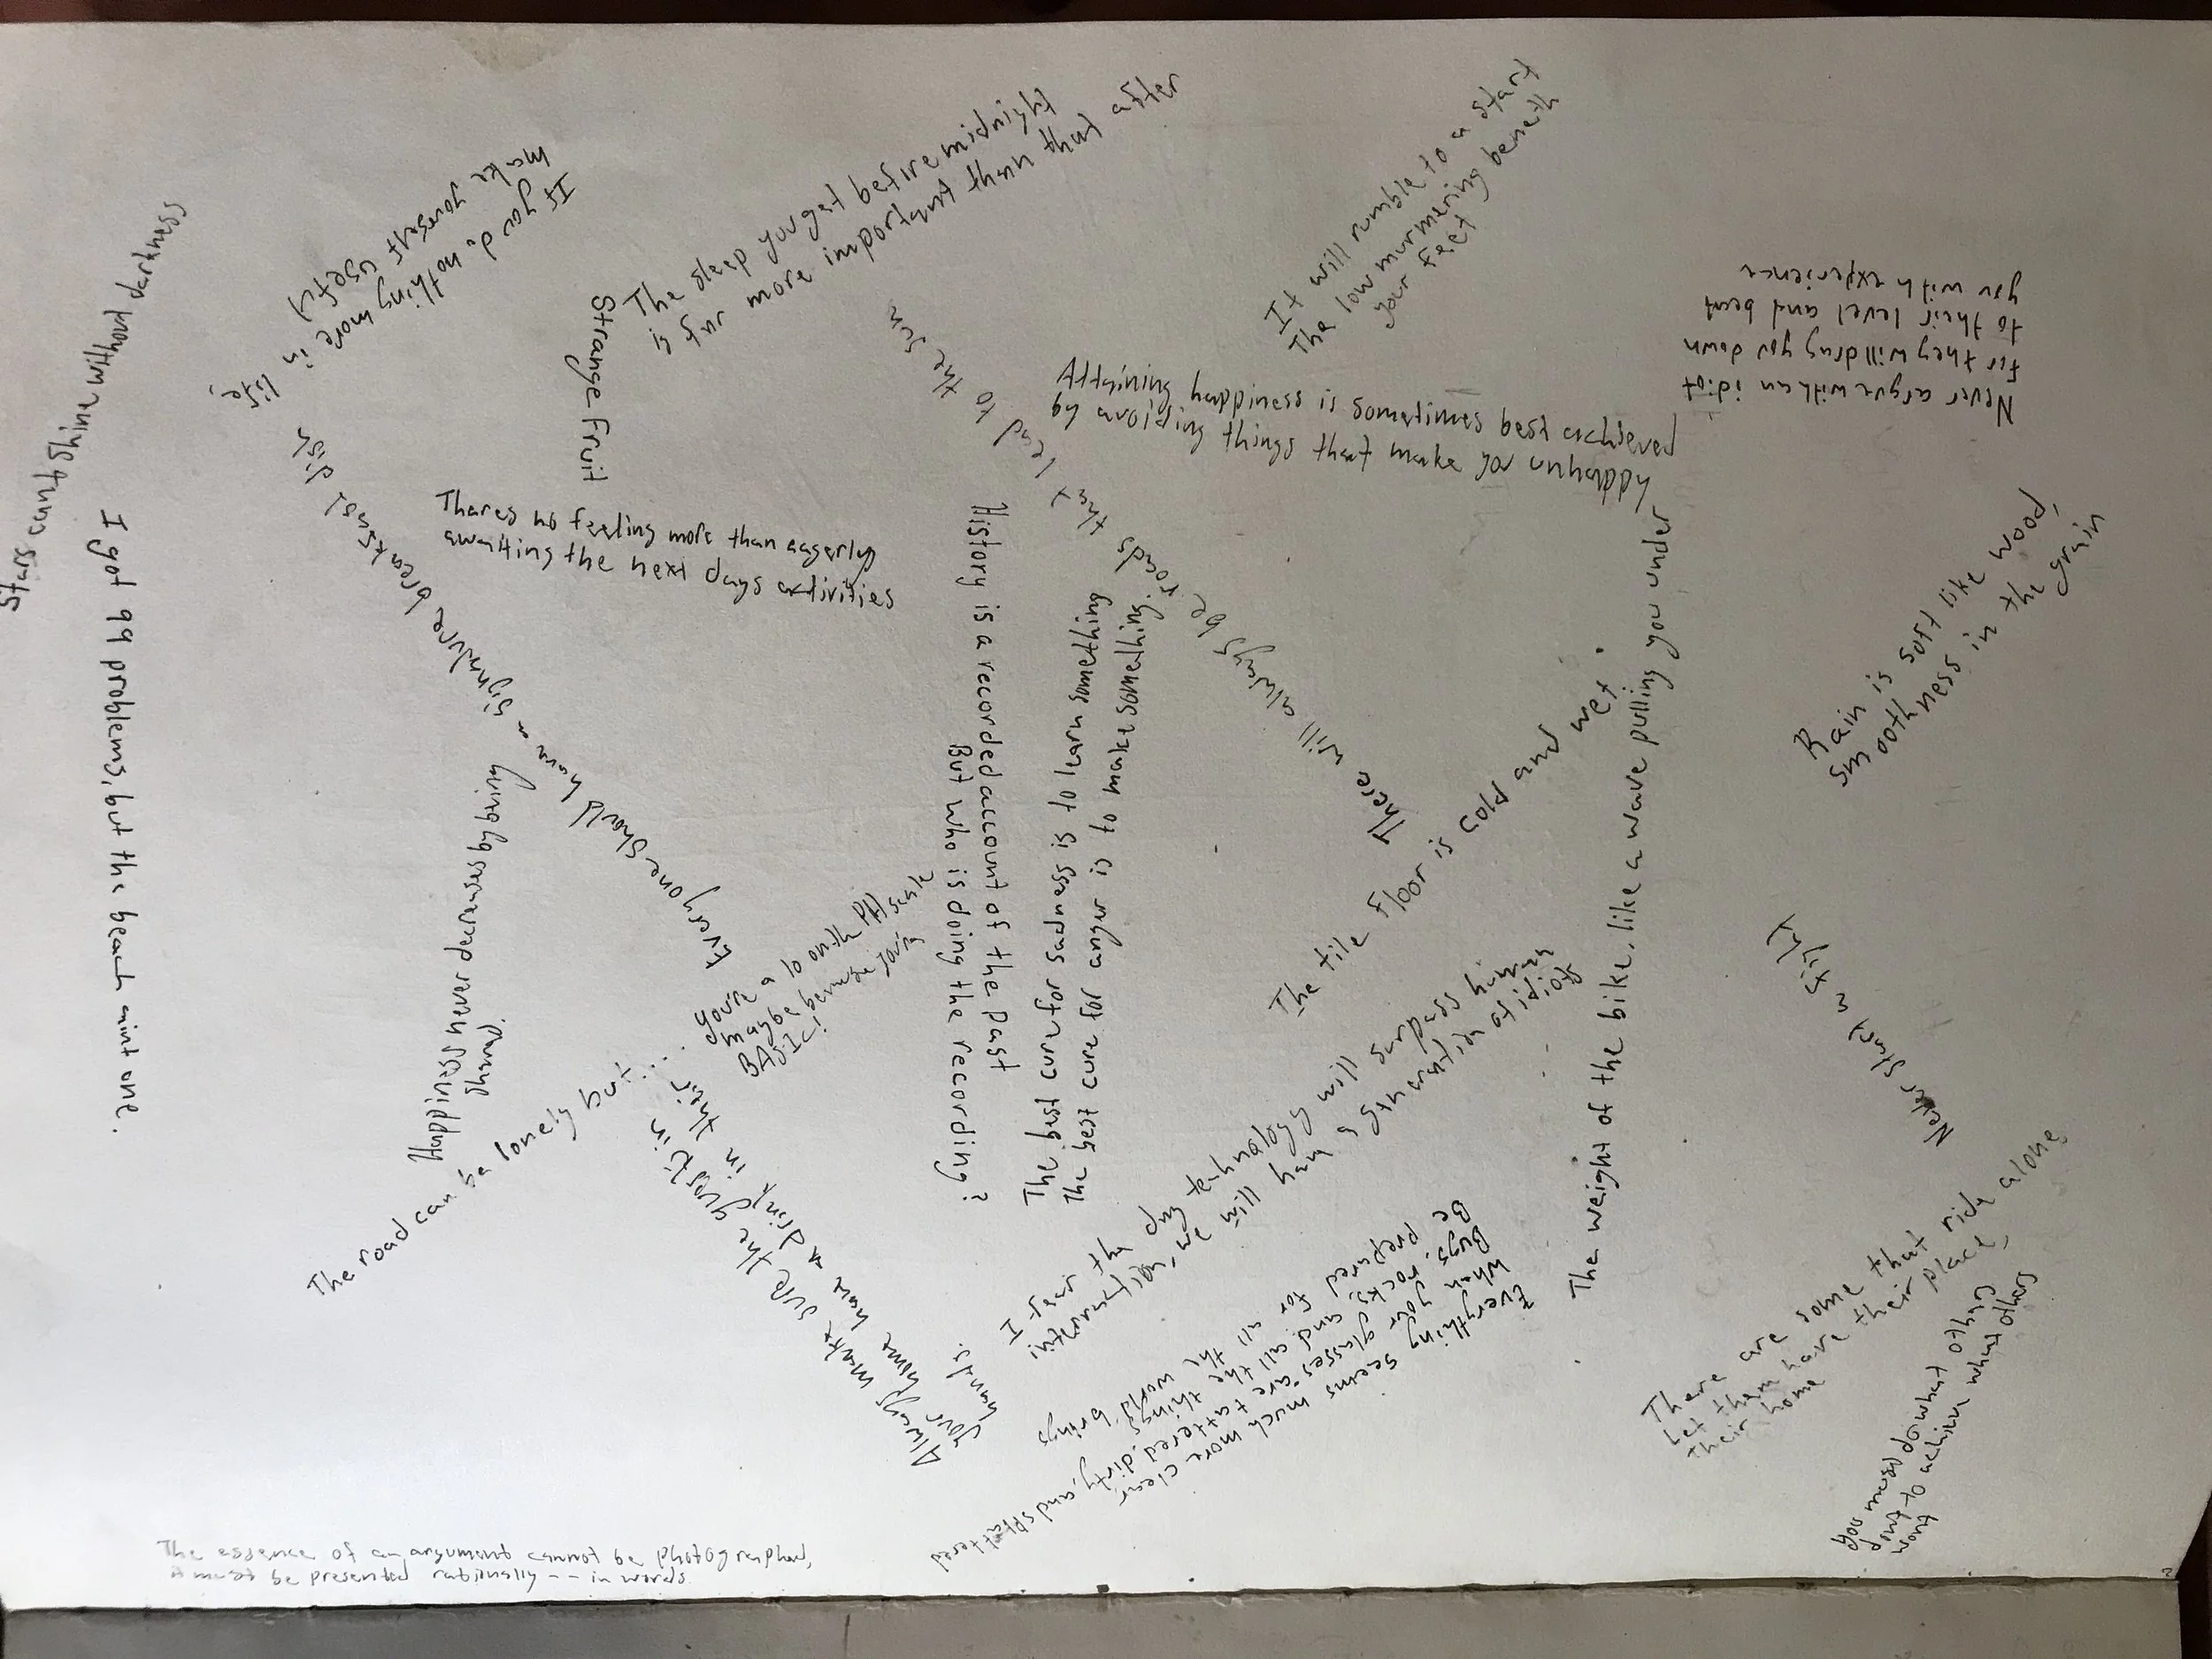 Stars cant shine without darkness
I got 99 problems, but the beach aint one.
If your d. nothing more in life,
make yourself useful
Strange Fruit
The sleep you get before midnight
is far more important than that after
It will rumble to a start
The low murmering beneath
your feet
Never argue with an idiot
for they will drag you down
to their level and beat
you with experience
Attaining happiness is sometimes best achieved
by avoiding things that make you unhappy
There will always be roads that lead to the sun
Everyone should have a signature breakfast dish
Thares no feeling more than eagerly
awaiting the next days activities
History is a recorded account of the past
But who is doing the recording?
The best cure for sadness is to learn something
The best cure for anger is to make something.
Happiness never decreases by being
shared.
The tile floor is cold and wet.
The weight of the bike, like a wave pulling you under
Rain is soft like wood,
smoothness in the grain
Never start w/ tify
The road can be lonely but....
you're a 10 on the PH scale
maybe because you're
BASIC!
Always make sure the guests in
your home have a drink in their
hands.
I fear the day technology will surpass human
interaction, we will have a generation of idiots
Everything seems much more clear
When your glasses are tattered, dirty, and splattered
Bugs, rocks, and all the things
Be prepared for all the world brings
There are some that ride alone
Let them have their place,
their home
You must do what others
dont to achieve what others
wont
The essence of an argument cannot be photographed,
it must be presented rationally -- in words